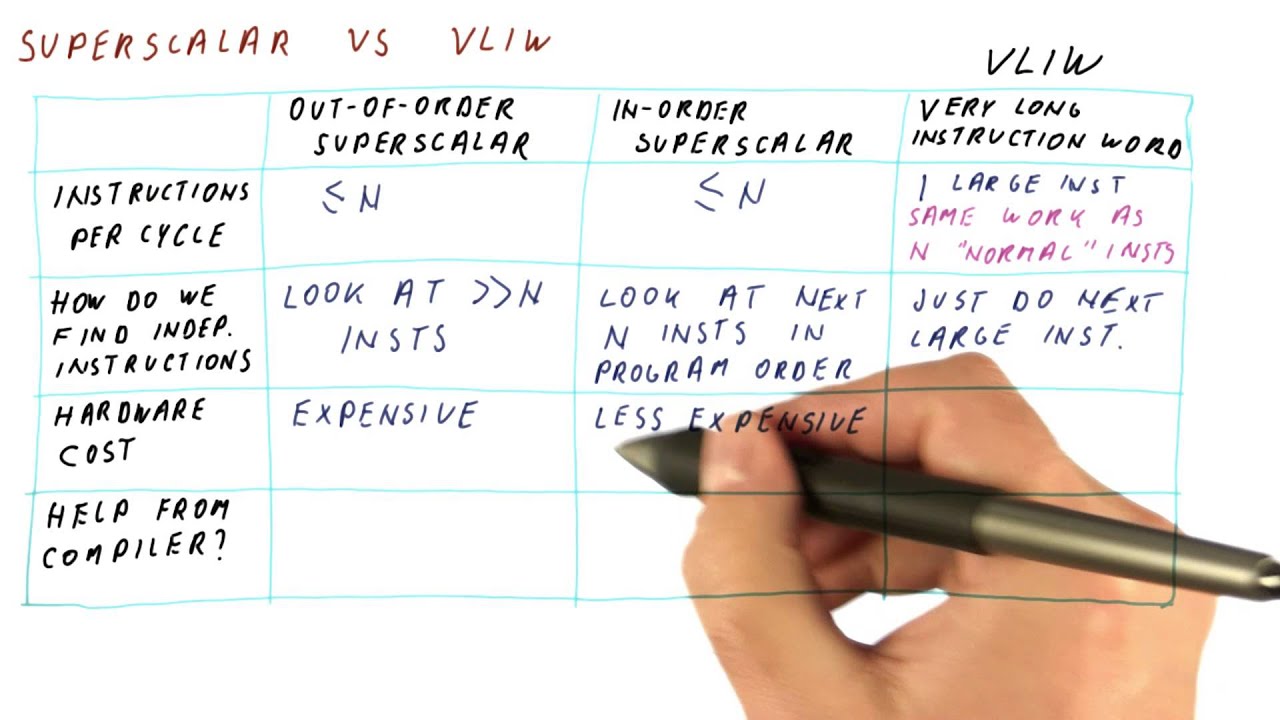 SUPERSCALAR VS VLIW
VLIW
OUT-OF-ORDER
SUPERSCALAR
IN-ORDER
SUPERSCALAR
VERY LONG
INSTRUCTION WORD
INSTRUCTIONS
PER CYCLE
≤ N
≤ N
1 LARGE INST
SAME WORK AS
N "NORMAL" INSTS
HOW DO WE
FIND INDEP.
INSTRUCTIONS
LOOK AT >>N
INSTS
LOOK AT NEXT
N INSTS IN
PROGRAM ORDER
JUST DO NEXT
LARGE INST.
HARDWARE
COST
EXPENSIVE
LESS EXPENSIVE
HELP FROM
COMPILER?